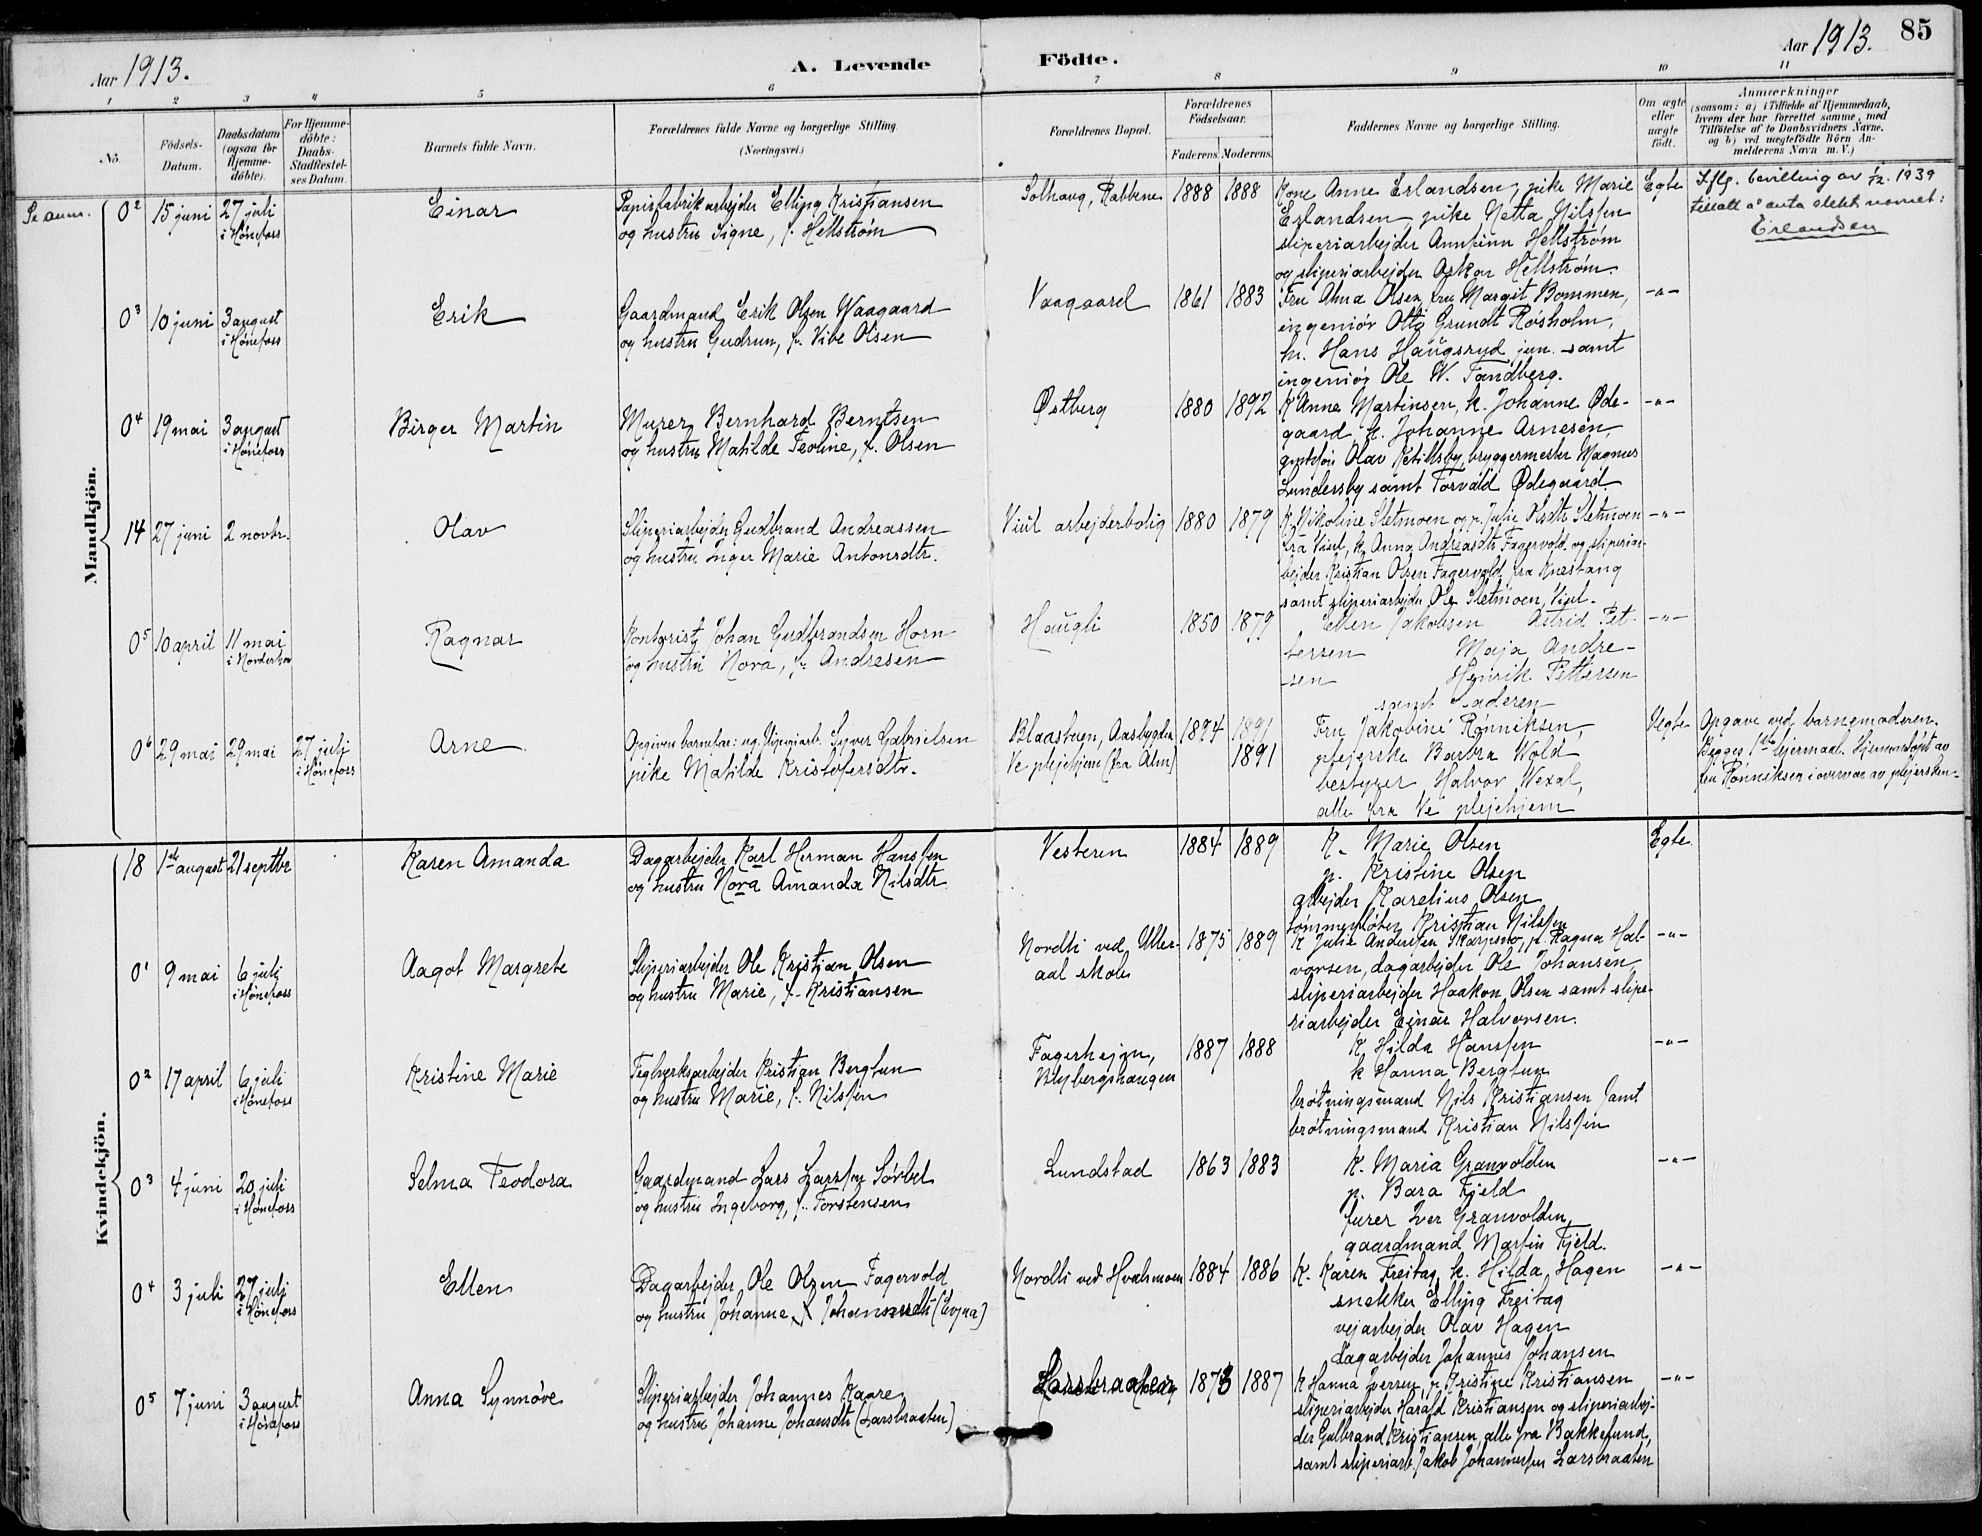 Aar 1913.
A. Levende Födte.
Aar 1913. 85
1 2 3 4 5 6 7 8 9 10 11
No.
Födsels-Datum.
Daabsdatum (ogsaa for Hjemme-döbte).
For Hjemme-döbte: Daabs-Stadfæstel-ses Datum.
Barnets fulde Navn.
Forældrenes fulde Navne og borgerlige Stilling.
(Næringsvei.)
Forældrenes Bopæl.
Forældrenes Födselsaar.
Faderens. Moderens.
Faddernes Navne og borgerlige Stilling.
Om ægte eller uægte født.
Anmærkninger
(saasom: a) i Tilfælde af Hjemmedaab,
hvem der har forrettet samme, med
Tilföielse af to Daabsvidners Navne.
og b) ved uægtefödte Börn An-
melderens Navn m. V.)
Mandkjön.
Se anm. 0² 15 juni 27 juli i Hønefoss
Einar
Papirfabrikarbejder Elling Kristiansen
og hustru Signe, f. Hellstrøm
Solhaug, Rabbene 1888 1888
Kone Anne Erlandsen, pike Marie
Erlandsen, pike Netta Nilssen
sliperiarbejder Annfinn Hellstrøm
og sliperiarbejder Askar Hellstrøm.
Egte
Iflg. bevilling av 1/12. 1939
tillatt å anta slektsnavnet:
Erlandsen
0³ 10 juni 3 august i Hønefoss
Erik
Gaardmand Erik Olsen Waagaard
og hustru Gudrun, f. Vibe Olsen
Vaagaard 1861 1883
Fru Alma Olsen, fru Margit Bommen,
ingeniör Otto Grundt Røsholm,
hr. Hans Haugsrud jun. samt
ingeniör Ole W. Tandberg.
-"-
0⁴ 19 mai 3 august i Hønefoss
Birger Martin
Murer Bernhard Berntsen
og hustru Matilde Teoline, f. Olsen
Østberg 1880 1892
K. Anne Martinsen, k. Johanne Øde-
gaard, k. Johanne Arnesen,
Olav Ketillsby, bryggermester Magnus
Lundersby samt Torvald Ødegaard.
-"-
14 27 juni 2 novbr.
Olav
Sliperiarbejder Gudbrand Andreassen
og hustru Inger Marie Antonsdtr.
Viul arbejderbolig 1880 1879
K. Nikoline Sletmoen og p. Julie Olsdtr Sletmoen
fra Viul, k. Anna Andreasdtr Fagervold og sliperiar-
bejder Kristian Olsen Fagervold fra Knestang
samt sliperiarbejder Ole Sletmoen, Viul.
-"-
0⁵ 10 april 11 mai i Norderhov
Ragnar
Kontorist Johan Gudbrandsen Horn
og hustru Nora, f. Andresen
Haugli 1850 1879
Ellen Jakobsen Astrid Pet-
tersen Maja Andre-
sen Henrik Pettersen
samt Faderen
-"-
0⁶ 29 mai 29 mai 27 juli i Hønefoss
Arne
Opgiven barnefar: ug. sliperiarb. Syver Gabrielsen
pike Matilde Kristofersdtr.
Blaasteren, Aasbygden 1894 1891
Ve plejehjem (fra Alm) 1891
Fru Jakobine Rønniksen,
plejerske Barbra Wold
bestyrer Halvor Wexal,
alle fra Ve plejehjem
Uegte
Opgave ved barnemoderen.
Begges 1ste lejermaal. Hjemmedøpt av
fru Rønniksen i overvær av plejersken.
Kvindekjön.
18 1ste august 21 septbr
Karen Amanda
Dagarbejder Karl Herman Hanssen
og hustru Nora Amanda Nilsdtr
Vesteren 1884 1889
K. Marie Olsen
p. Kristine Olsen
arbejder Karelius Olsen
tømmerfløter Kristian Nilssen
Egte
0¹ 9 mai 6 juli i Hønefoss
Aagot Margrete
Sliperiarbejder Ole Kristian Olsen
og hustru Marie, f. Kristiansen
Nordli ved Uller-
aal skole 1875 1889
K. Julie Andersen Skarpsno, p. Ragna Hal-
vorsen, dagarbejder Ole Johansen
sliperiarbejder Haakon Olsen samt slipe-
riarbejder Einar Halvorsen.
-"-
0² 17 april 6 juli i Hønefoss
Kristine Marie
Teglverksarbejder Kristian Bergtun
og hustru Marie, f. Nilssen
Fagerhejm,
Blybergshaugen 1887 1888
K. Hilda Hanssen
k. Hanna Bergtun
brøtningsmand Nils Kristiansen samt
brøtningsmand Kristian Nilssen
-"-
0³ 4 juni 20 juli i Hønefoss
Selma Teodora
Gaardmand Lars Larssen Sørbel
og hustru Ingeborg, f. Torstensen
Lundstad 1863 1883
K. Maria Granvolden
p. Bara Fjeld
furer Iver Granvolden
gaardmand Martin Fjeld.
-"-
0⁴ 3 juli 27 juli i Hønefoss
Ellen
Dagarbejder Ole Olsen Fagervold
og hustru Johanne, f. Johannesdtr
Nordli ved Hvalsmoen 1884 1886
K. Karen Freitag, k. Hilda Hagen
snekker Elling Freitag
vejarbejder Olav Hagen
dagarbejder Johannes Johansen
-"-
0⁵ 7 juni 3 august i Hønefoss
Anna Synnöve
Sliperiarbejder Johannes Kaare
og hustru Johanne Johansdtr (Larsbraaten)
Larsbraaten 1873 1887
K. Hanna Iversen, p. Kristine Kristiansen
sliperiarbejder Harald Kristiansen og sliperiarbej-
der Gulbrand Kristiansen, alle fra Bakkelund,
samt sliperiarb. Jakob Johannessen Larsbraaten
-"-